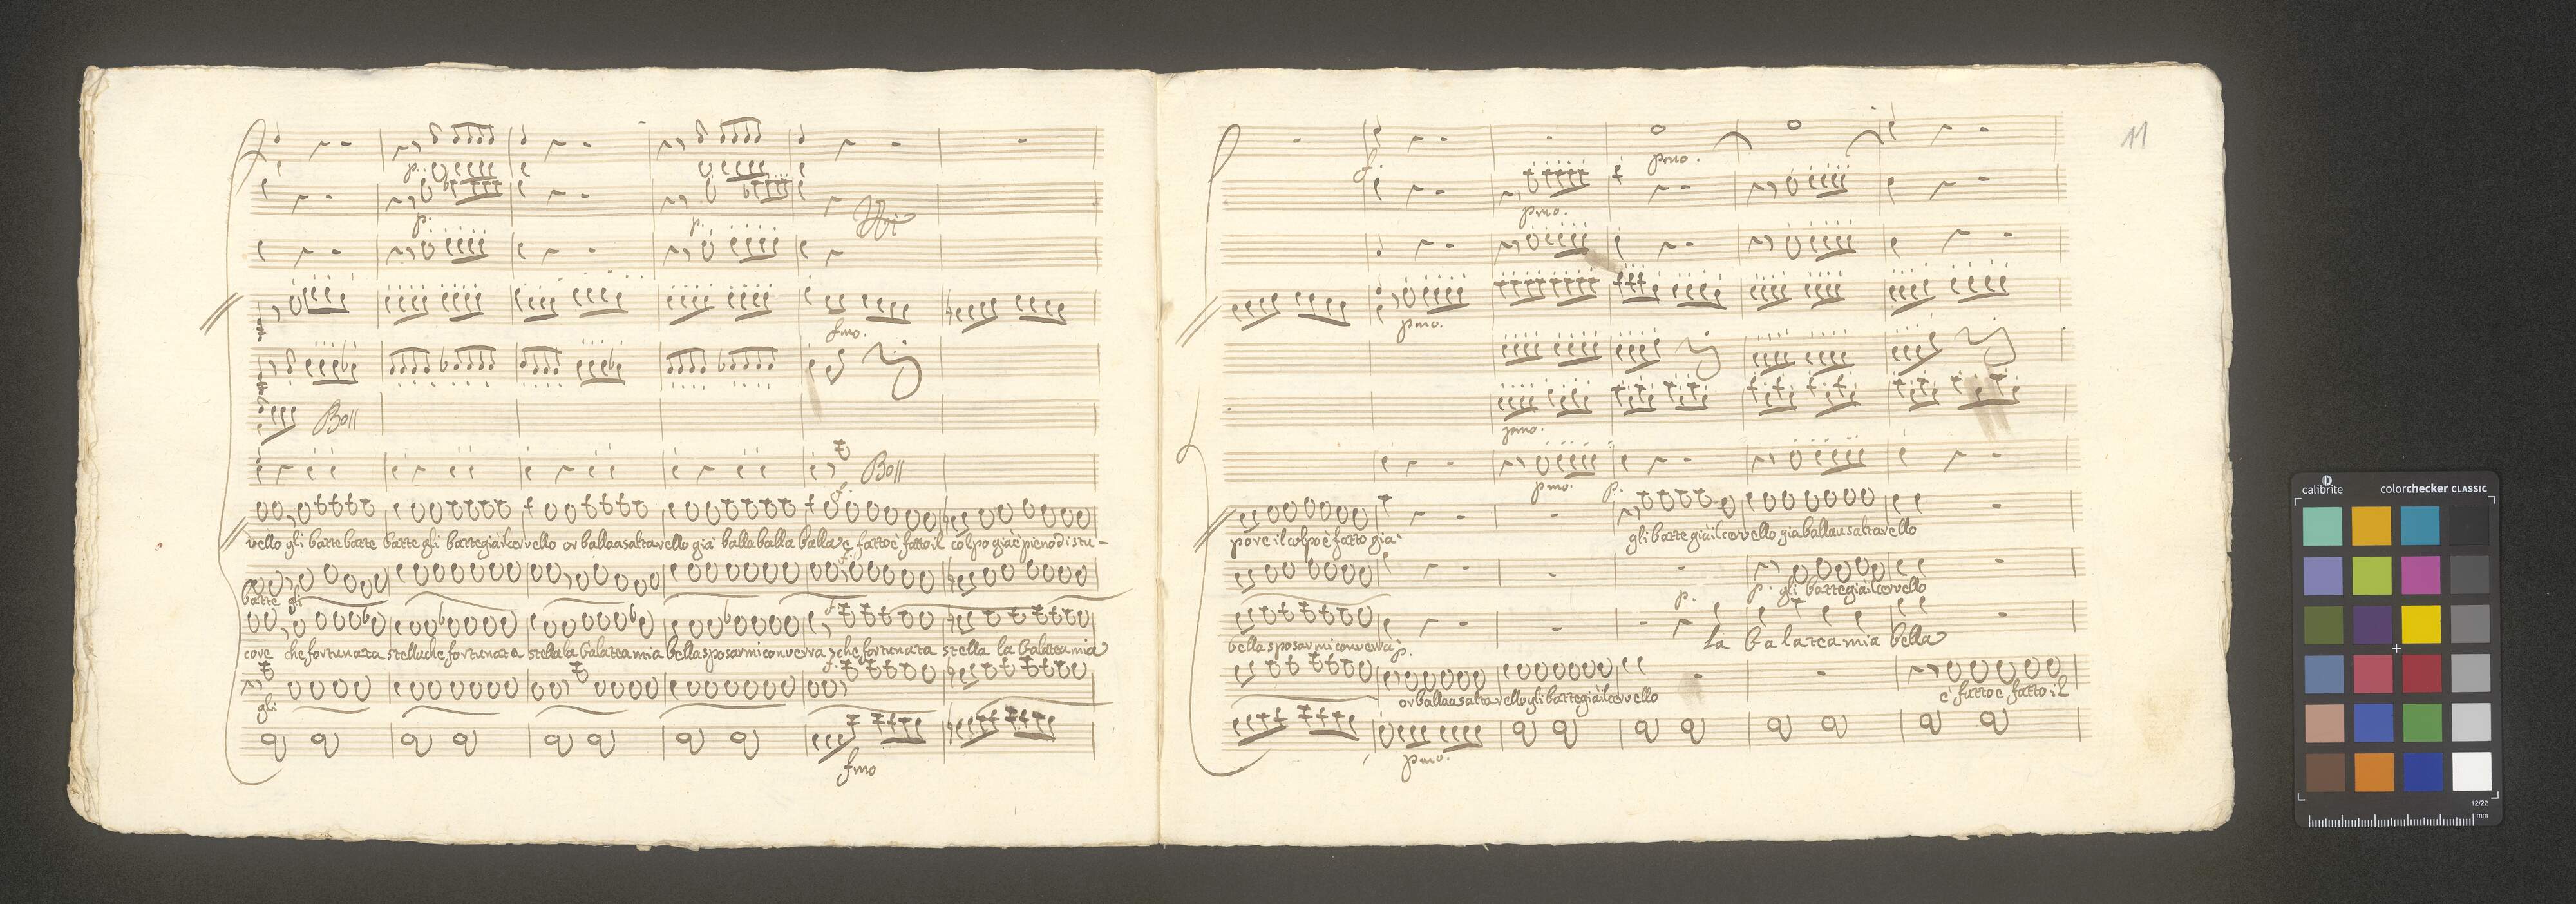 p.
p. p.
Vni
fmo.
Boll
Boll
f.
vello gli batte batte batte gli batte già il cervello or balla a saltarvello già balla balla balla è fatto è fatto il colpo già è pieno di stu-
f.
batte gli
f.
core che fortunata stella che fortunata stella la Galatea mia bella sposar mi converrà, che fortunata stella la Galatea mia
f.
gli
fmo
11
f. pmo.
pmo.
pmo.
pmo.
pmo. p.
pore il colpo è fatto già gli batte già il cervello già balla a saltarvello
p. p. gli batte già il cervello
bella sposar mi converrà La Galatea mia bella
p.
or balla a saltarvello gli batte già il cervello è fatto è fatto il
pmo.
calibrite colorchecker CLASSIC
12/22
mm